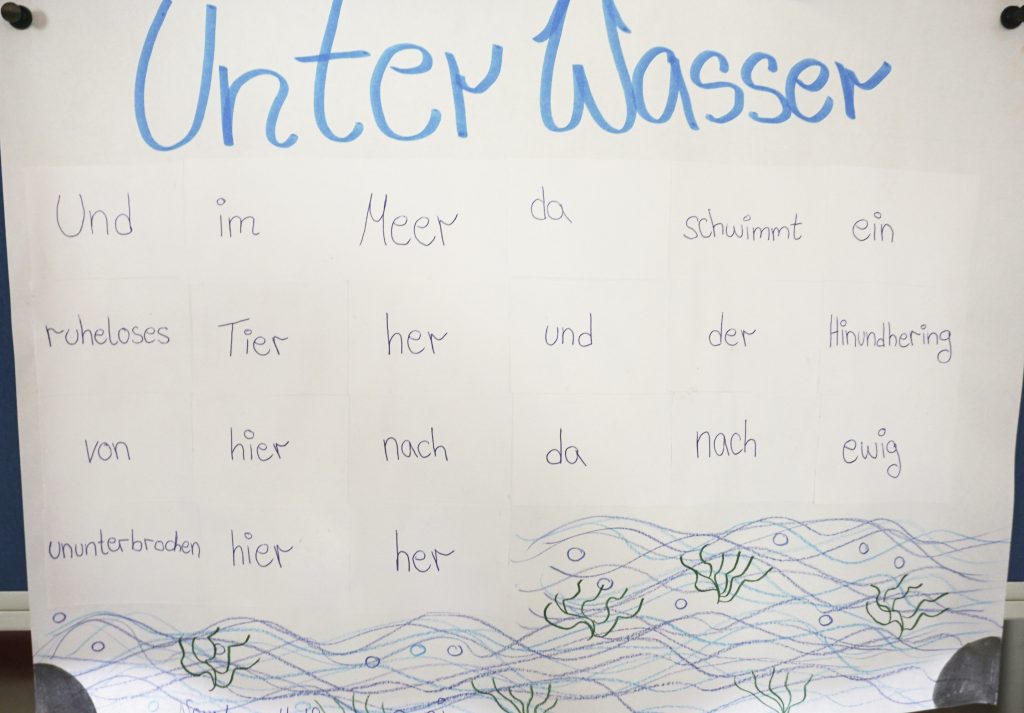 Unter Wasser
Und im Meer da schwimmt ein
ruheloses Tier her und der Hinundhering
von hier nach da nach ewig
ununterbrochen hier her